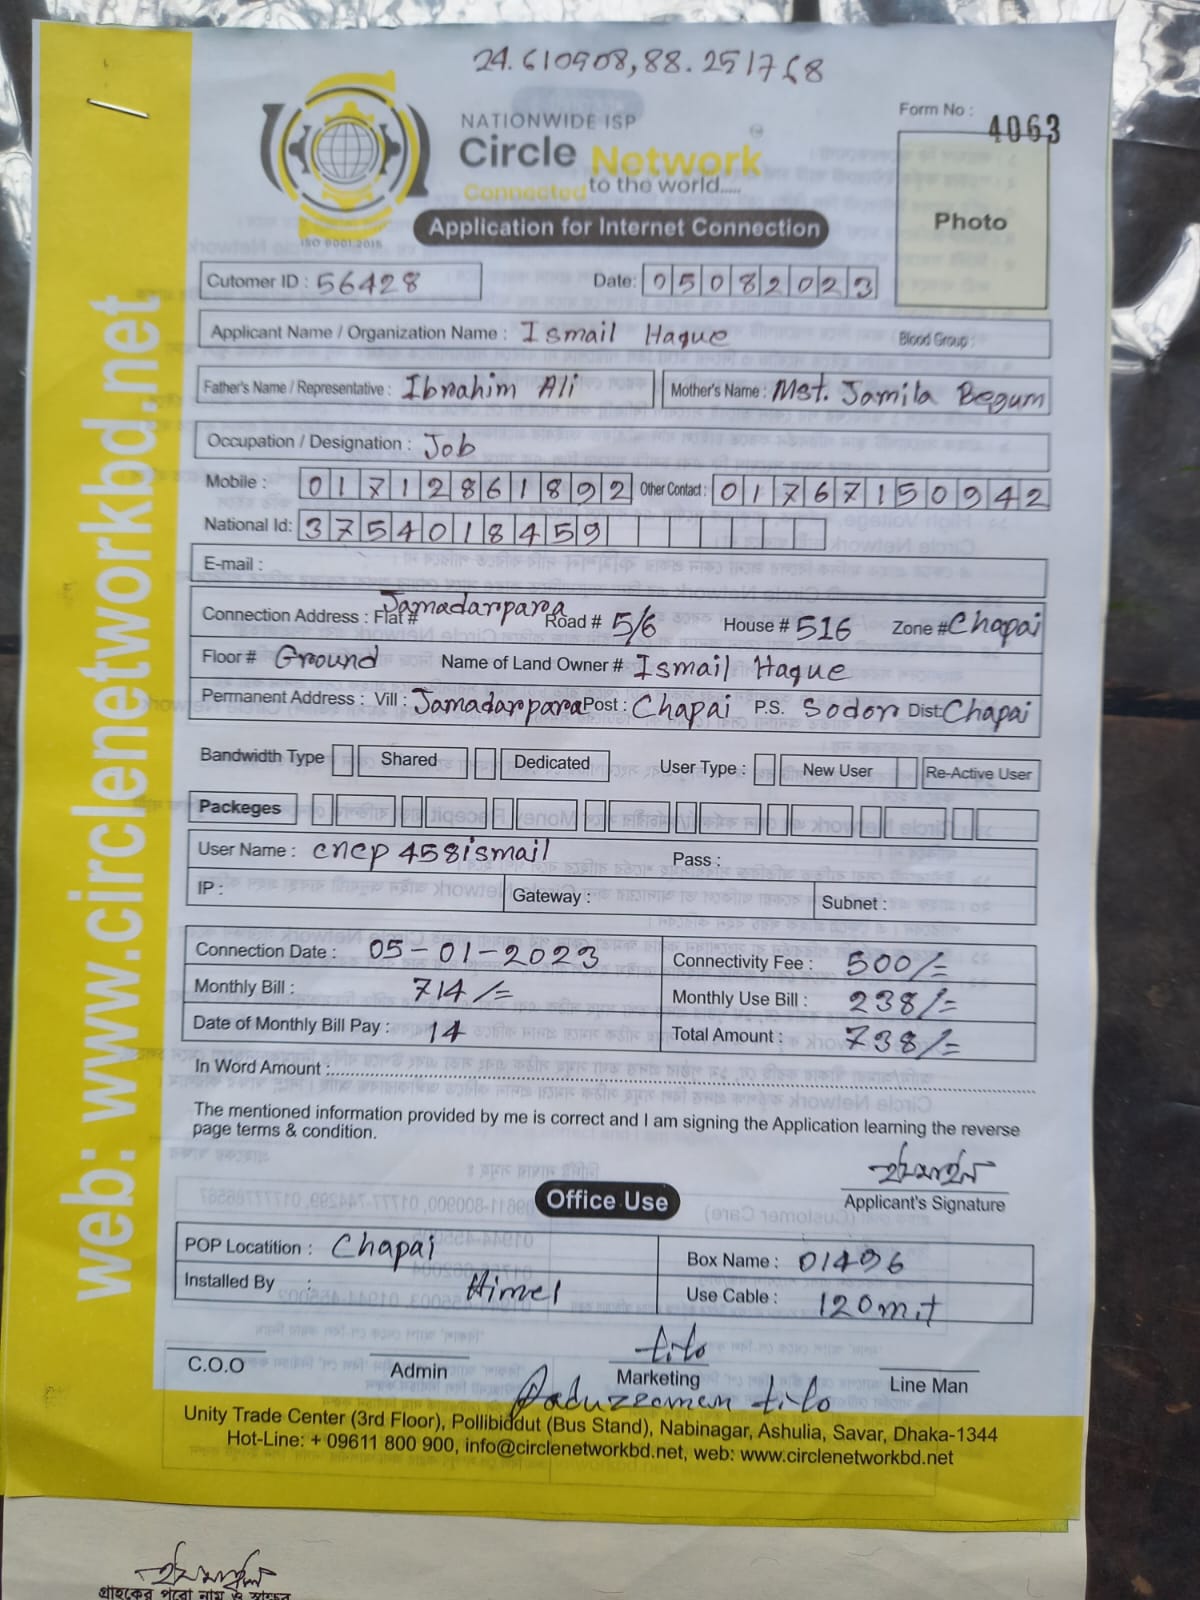 24.610908,88.251768
Form No : 4063
NATIONWIDE ISP
Circle Network
Connected to the world.....
ISO 9001:2015
Application for Internet Connection
Photo
Cutomer ID : 56428 Date: 05082023
Applicant Name / Organization Name : Ismail Haque Blood Group :
Father's Name / Representative : Ibrahim Ali Mother's Name : Mst. Jamila Begum
Occupation / Designation : Job
Mobile : 01712861892 Other Contact : 01767150942
National Id: 3754018459
E-mail :
Connection Address : Flat # Jamadarpara Road # 5/6 House # 516 Zone # Chapai
Floor # Ground Name of Land Owner # Ismail Haque
Permanent Address : Vill : Jamadarpara Post : Chapai P.S. Sodor Dist: Chapai
Bandwidth Type Shared Dedicated User Type : New User Re-Active User
Packeges
User Name : cncp458ismail Pass :
IP : Gateway : Subnet :
Connection Date : 05-01-2023 Connectivity Fee : 500/=
Monthly Bill : 714/= Monthly Use Bill : 238/=
Date of Monthly Bill Pay : 14 Total Amount : 738/=
In Word Amount :
The mentioned information provided by me is correct and I am signing the Application learning the reverse
page terms & condition.
Applicant's Signature
Office Use
POP Locatition : Chapai Box Name : 01496
Installed By : Himel Use Cable : 120mit
tito
C.O.O Admin Marketing Line Man
tito
Unity Trade Center (3rd Floor), Pollibiddut (Bus Stand), Nabinagar, Ashulia, Savar, Dhaka-1344
Hot-Line: + 09611 800 900, info@circlenetworkbd.net, web: www.circlenetworkbd.net
web: www.circlenetworkbd.net
গ্রাহকের পুরো নাম ও স্বাক্ষর